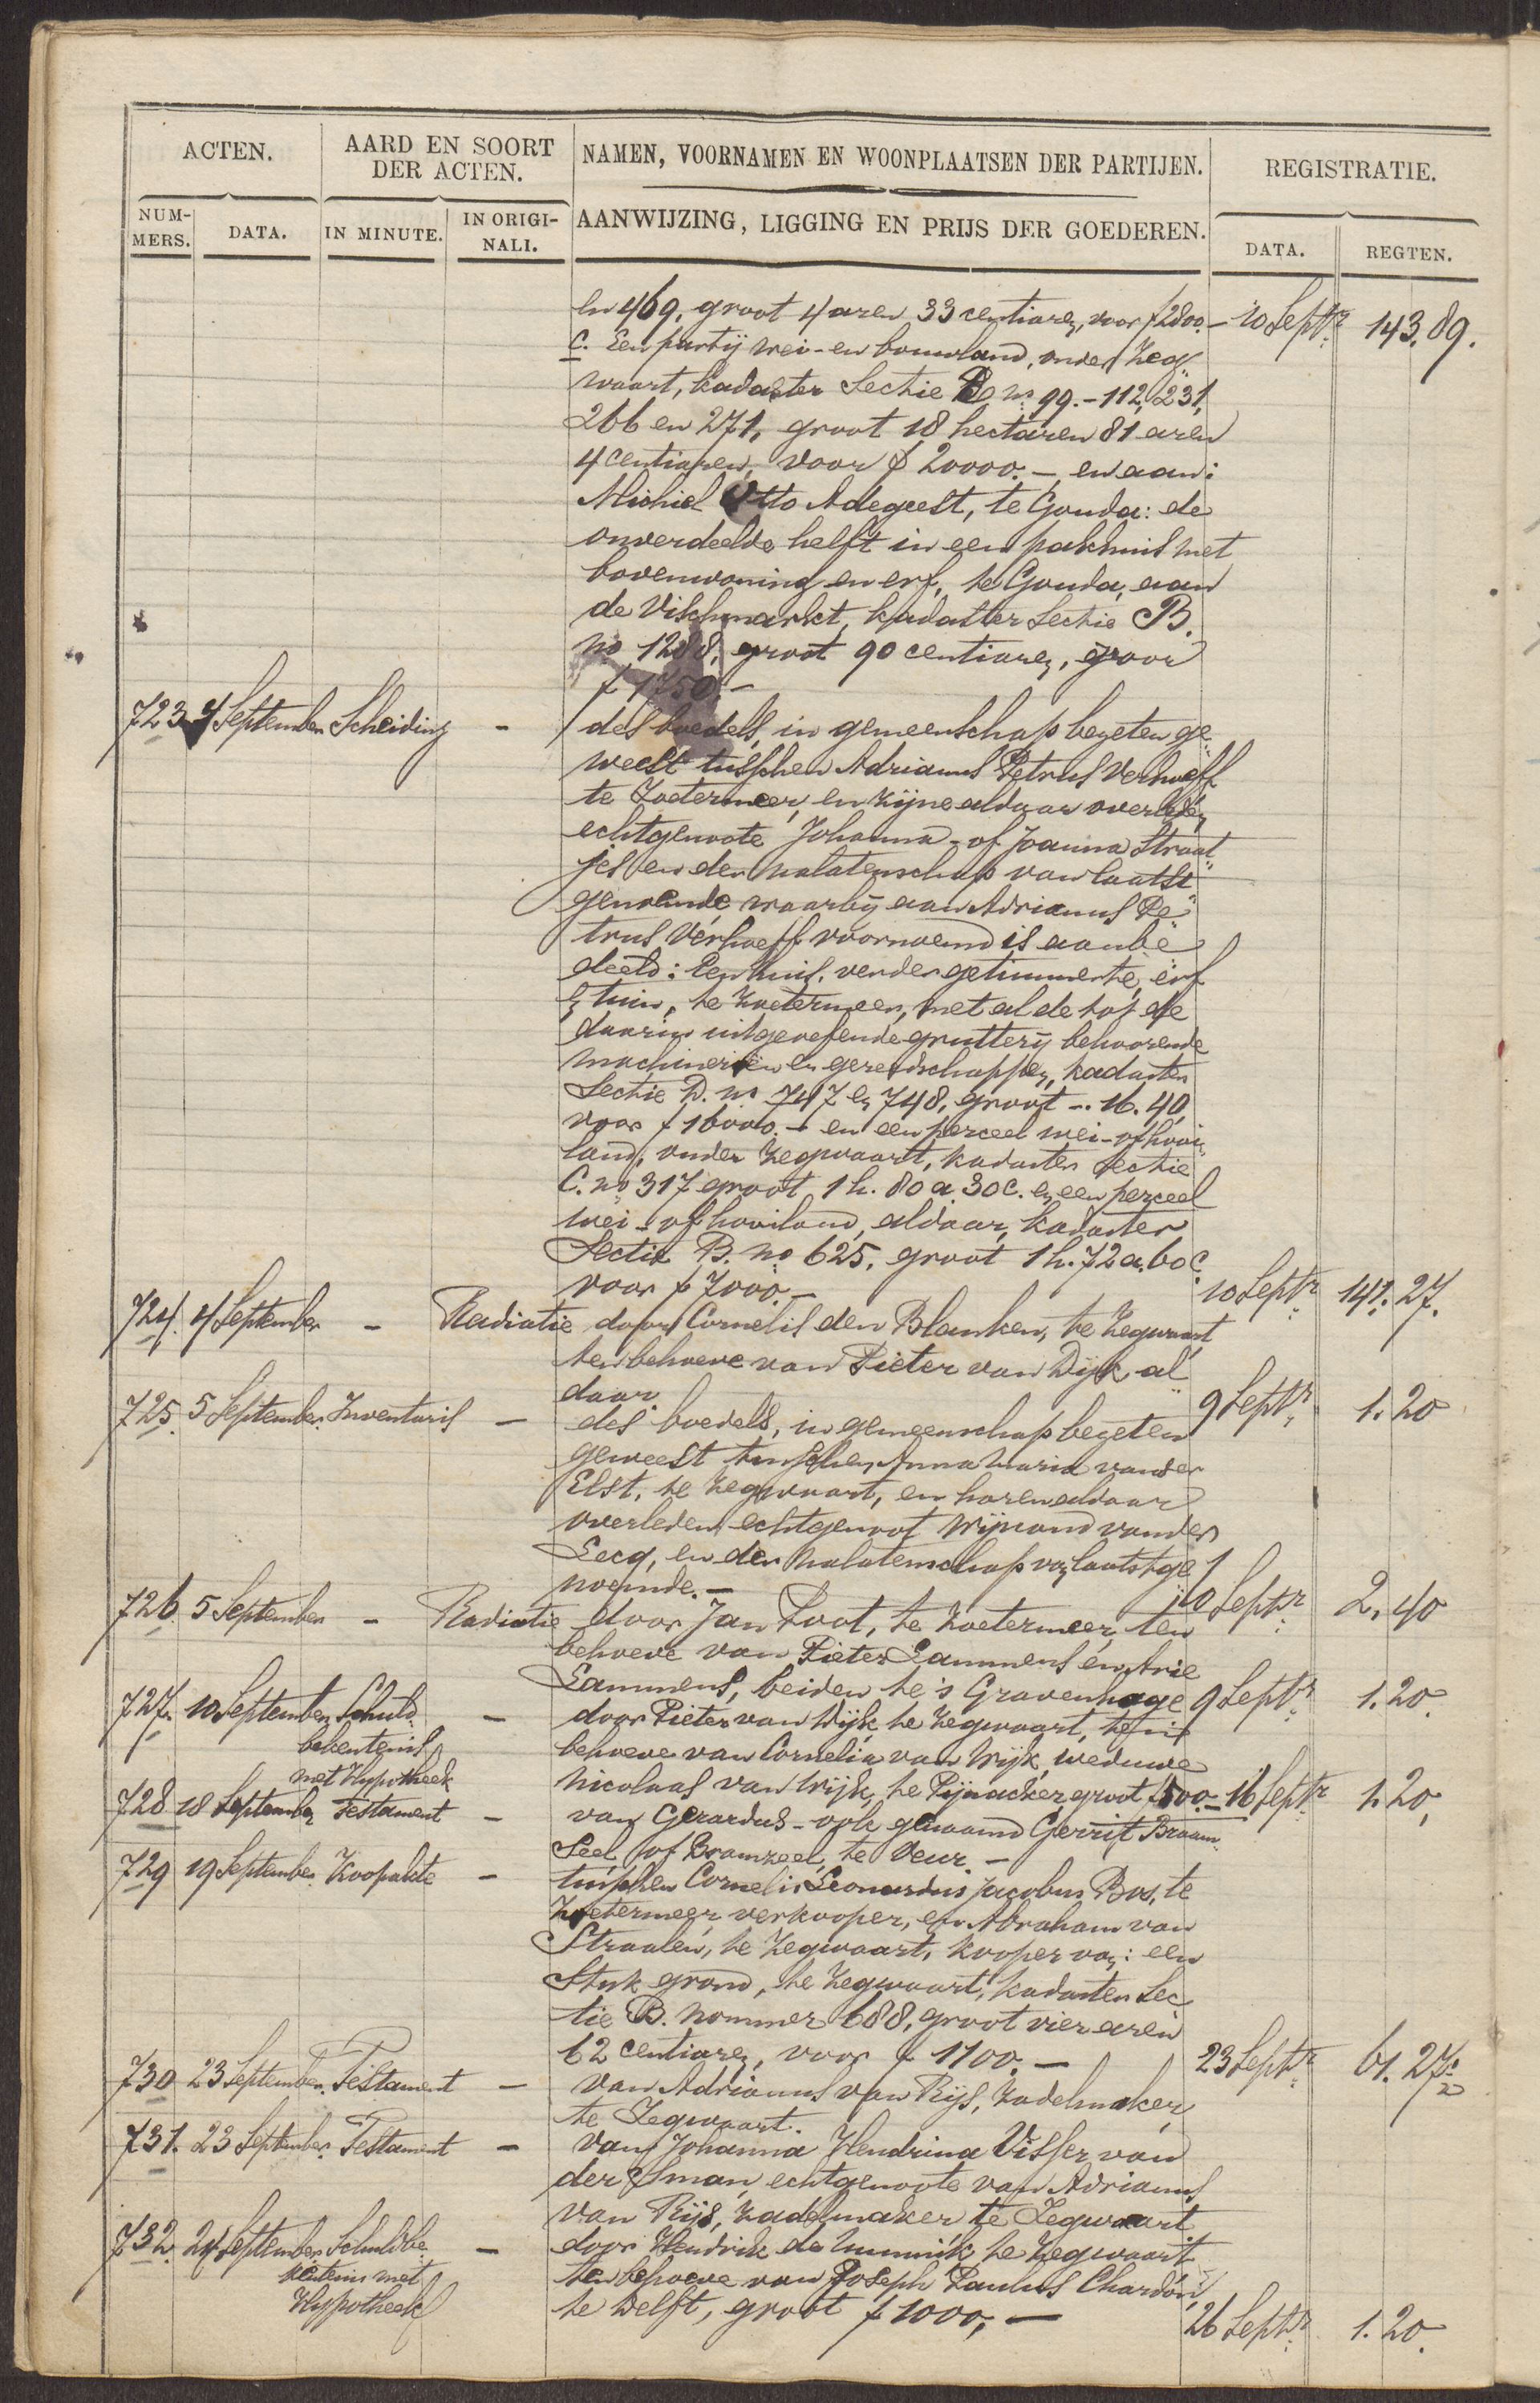 ACTEN.
AARD EN SOORT
DER ACTEN.
NAMEN, VOORNAMEN EN WOONPLAATSEN DER PARTIJEN.
REGISTRATIE.
NUM-
MERS.
DATA.
IN MINUTE.
IN ORIGI-
NALI.
AANWIJZING, LIGGING EN PRIJS DER GOEDEREN.
DATA.
REGTEN.
en 469, groot 4 aren 33 centiaren, voor f 2800.- 10 Septr. 143.89.
C. Een partij wei- en bouwland, onder Zeg„
waart, kadaster Sectie B no 99.-112, 231,
266 en 271, groot 18 hectaren 81 aren
4 centiaren, voor f 20000.- en aan:
Michiel Otto Adegeest, te Gouda: de
onverdeelde helft in een pakhuis met
bovenwoning en erf, te Gouda, aan
de Vischmarkt, kadaster Sectie B.
no 1288, groot 90 centiaren, voor
f 1750.-
723 4 September Scheiding - des boedels, in gemeenschap bezeten ge„
weest tusschen Adrianus Petrus Verhoeff
te Zoetermeer, en zijne aldaar overleden
echtgenoote Johanna- of Joanna Straat„
jes en der nalatenschap van laatst„
genoemde waarbij aan Adrianus Pe„
trus Verhoeff voornoemd is aanbe„
deeld: Een huis, verder getimmerte, erf
en tuin, te Zoetermeer, met al de tot de
daarin uitgeoefende grutterij behoorende
machineriën en gereedschappen, kadaster
Sectie D. no 747 en 748, groot -. 16. 40,
voor f 16000.- en een perceel wei- of hooi„
land, onder Zegwaart, kadaster Sectie
C. no 317 groot 1 h. 80 a. 30 c. en een perceel
wei- of hooiland, aldaar, kadaster
Sectie B. no 625, groot 1 h. 72 a. 60 c.
voor f 7000.- 10 Septr. 141.27.
724. 4 September - Radiatie door Cornelis den Blanken, te Zegwaart
ten behoeve van Pieter van Dijk al„
daar. 9 Septr. 1.20
725. 5 September Inventaris - des boedels, in gemeenschap bezeten
geweest tusschen Anna Maria van der
Elst, te Zegwaart, en haren aldaar
overleden echtgenoot Wijnand van der
Lecq, en der nalatenschap van laatstge
noemde.- 10 Septr. 2.40
726. 5 September - Radiatie door Jan Loot, te Zoetermeer, ten
behoeve van Pieter Lammens en Arie
Lammens, beiden te 's Gravenhage 9 Septr. 1.20.
727. 10 September Schuld„ - door Pieter van Wijk, te Zegwaart, ten
bekentenis behoeve van Cornelia van Wijk, weduwe
met Hypotheek Nicolaas van Wijk, te Pijnacker, groot f 500.- 16 Septr. 1.20,
728 18 September Testament - van Gerardus- ook genaamd Gerrit Braam„
Seel, of Bramzeel, te Veur.-
729 19 September Koopakte - tusschen Cornelis Leonardus Jacobus Bos, te
Zoetermeer, verkooper, en Abraham van
Straalen, te Zegwaart, kooper van: een
Stuk grond, te Zegwaart, kadaster Sec„
tie B. nommer 688, groot vier aren
62 centiaren, voor f 1100.- 23 Septr. 61.27.
730 23 September Testament - van Adrianus van Rijs, Zadelmaker,
te Zegwaart.
731. 23 September Testament - van Johanna Hendrina Visser van
der Sman, echtgenoote van Adrianus
van Rijs, Zadelmaker te Zegwaart.
732. 24 September Schuldbe„ - door Hendrik de Munnik, te Zegwaart
kentenis met ten behoeve van Joseph Paulus Chardon,
Hypotheek te Delft, groot f 1000,- 26 Septr. 1.20.